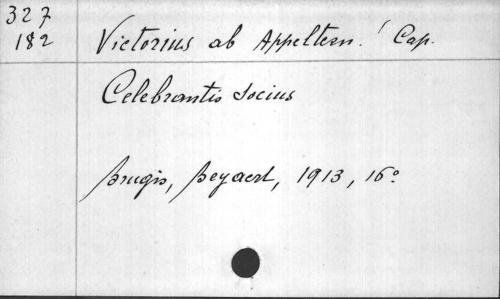 327
182
Victorius ab Appeltern. Cap.
Celebrantis Socius
Brugis, Beyaert, 1913, 16º